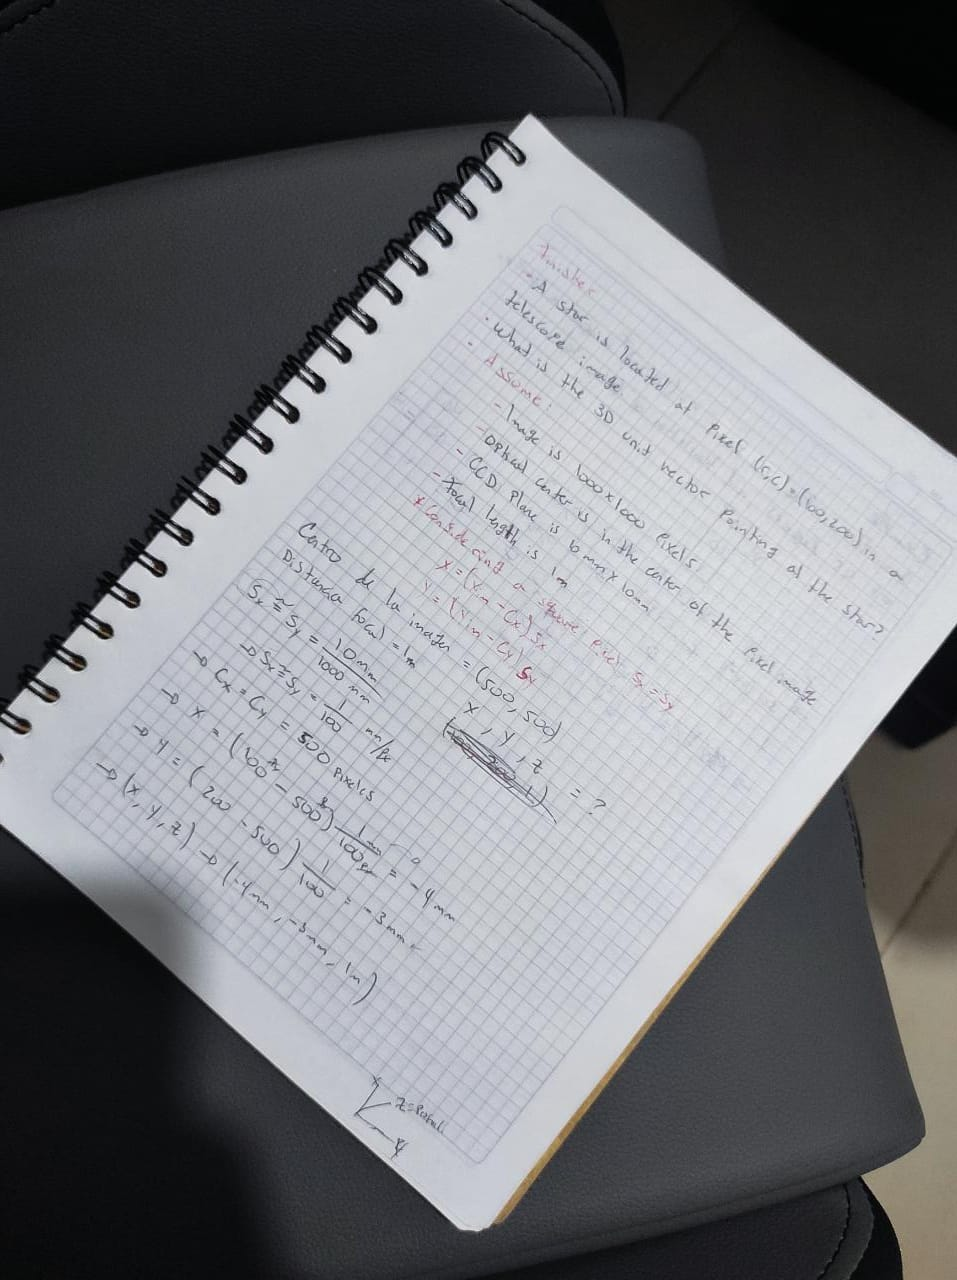 · A star is located at pixel (r,c)=(100,200) in a
telescope image.
· What is the 3D unit vector pointing at the star?
· Assume:
- Image is 1000x1000 pixels
- Optical center is in the center of the pixel image
- CCD plane is 10mm x 10mm
- Focal length is 1m
* Considering a square pixel Sx = Sy
X = (Xim - Cx) Sx
Y = (Yim - Cy) Sy
Centro de la imagen = (500, 500)
Distancia focal = 1m
X, Y, Z
= ?
Sx ≅ Sy = 10mm/1000
→ Sx ≅ Sy = 1/100 mm/px
→ Cx = Cy = 500 pixels
→ X = (100 - 500) 1mm/100px = -4mm
→ Y = (200 - 500) 1/100 = -3mm
→ (X, Y, Z) → (-4mm, -3mm, 1m)
x
Y